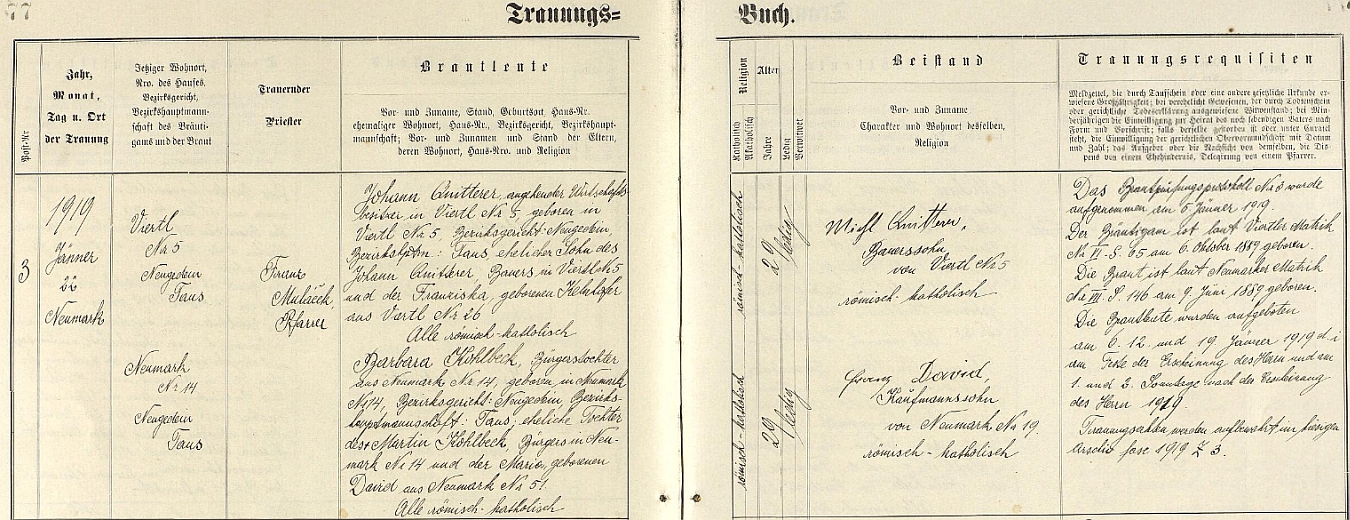 77
Trauungs=
Buch.
Post-Nr
Zahr,
Monat,
Tag u. Ort
der Trauung
Jetziger Wohnort,
Nro. des Hauses,
Bezirksgericht,
Bezirkshauptmann-
schaft des Bräuti-
gams und der Braut
Trauender
Priester
Brautleute
Vor- und Zuname, Stand, Geburtsort, Haus-Nr.
ehemaliger Wohnort, Haus-Nr., Bezirksgericht, Bezirkshaupt-
mannschaft; Vor- und Zunamen und Stand der Eltern,
deren Wohnort, Haus-Nro. und Religion
Religion
Katholisch
Akatholisch
Alter
Jahre
Ledig
Verwitwet
Beistand
Vor- und Zuname
Charakter und Wohnort desselben,
Religion
Trauungsrequisiten
Meldzettel, die durch Taufschein oder eine andere gesetzliche Urkunde er-
wiesene Großjährigkeit; bei verehelicht Gewesenen, der durch Todtenschein
oder gerichtliche Todeserklärung ausgewiesene Witwenstand; bei Min-
derjährigen die Einwilligung zur Heirat des noch lebendigen Vaters nach
Form und Vorschrift; falls derselbe gestorben ist oder unter Curatel
steht, die Einwilligung der gerichtlichen Obervormundschaft mit Datum
und Zahl; das Aufgebot oder die Nachsicht von demselben, die Dis-
pens von einem Ehehindernis, Delegirung von einem Pfarrer.
3
1919
Jänner
22
Neumark
Viertl
Nr 5
Neugedein
Taus
Franz
Muláček,
Pfarrer
Johann Quitterer, angehender Wirtschafts-
besitzer in Viertl Nr 5, geboren in
Viertl Nr 5 Bezirksgericht: Neugedein,
Bezirkshptm: Taus, ehelicher Sohn des
Johann Quitterer, Bauers in Viertl Nr 5
und der Franziska, geborenen
aus Viertl Nr 26
Alle römisch-katholisch
römisch-katholisch
29
ledig
Michl Quitterer,
Bauerssohn,
von Viertl Nr 5
römisch-katholisch
Das Brautprüfungsprotokoll Nr 3 wurde
aufgenommen am 5 Jänner 1919.
Der Bräutigam ist laut Viertler Matrik
Nr II S. 65 am 6. Oktober 1889 geboren.
Die Braut ist laut Neumarker Matrik
Nr III S. 146 am 9. Juni 1889 geboren.
Die Brautleute wurden aufgeboten
am 6. 12 und 19. Jänner 1919 d. i
am Feste der Erscheinung des Herrn und am
1. und 2. Sonntage nach der Erscheinung
des Herrn 1919.
Trauungsakten werden aufbewahrt im hiesigen
Archiv fasc 1919 Z 3.
Neumark
Nr 14
Neugedein
Taus
Barbara Kohlbeck, Bürgerstochter
aus Neumark Nr 14, geboren in Neumark
Nr 14, Bezirksgericht: Neugedein, Bezirks-
hauptmannschaft: Taus; eheliche Tochter
des Martin Kohlbeck, Bürgers in Neu-
mark Nr 14 und der Maria, geborenen
David aus Neumark Nr 51
Alle römisch-katholisch
römisch-katholisch
29
ledig
Franz David,
Kaufmannssohn
von Neumark Nr 19
römisch-katholisch